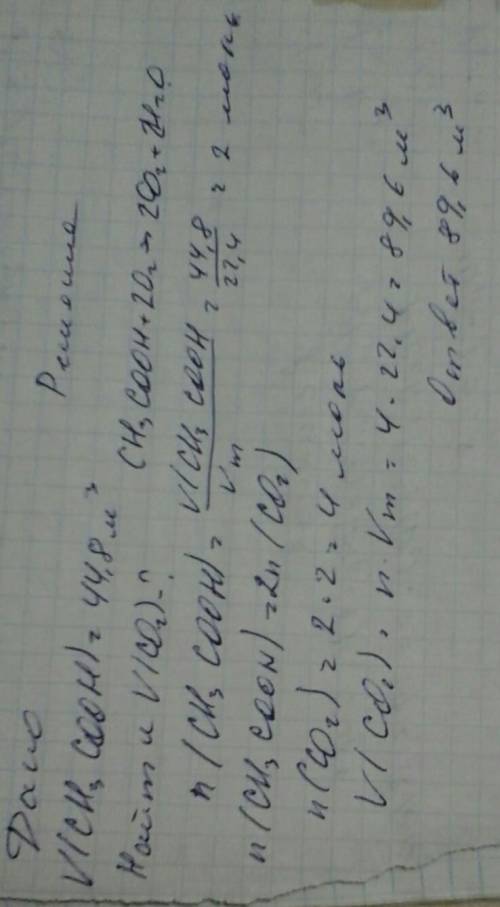 Дано
V(CH₃COOH) = 44,8 м³
Найти V(CO₂) - ?
Решение
CH₃COOH + 2O₂ → 2CO₂ + 2H₂O
n(CH₃COOH) = V(CH₃COOH / Vm = 44,8 / 22,4 = 2 моль
n(CH₃COOH) = 2n(CO₂)
n(CO₂) = 2 · 2 = 4 моль
V(CO₂) = n · Vm = 4 · 22,4 = 89,6 м³
Ответ 89,6 м³